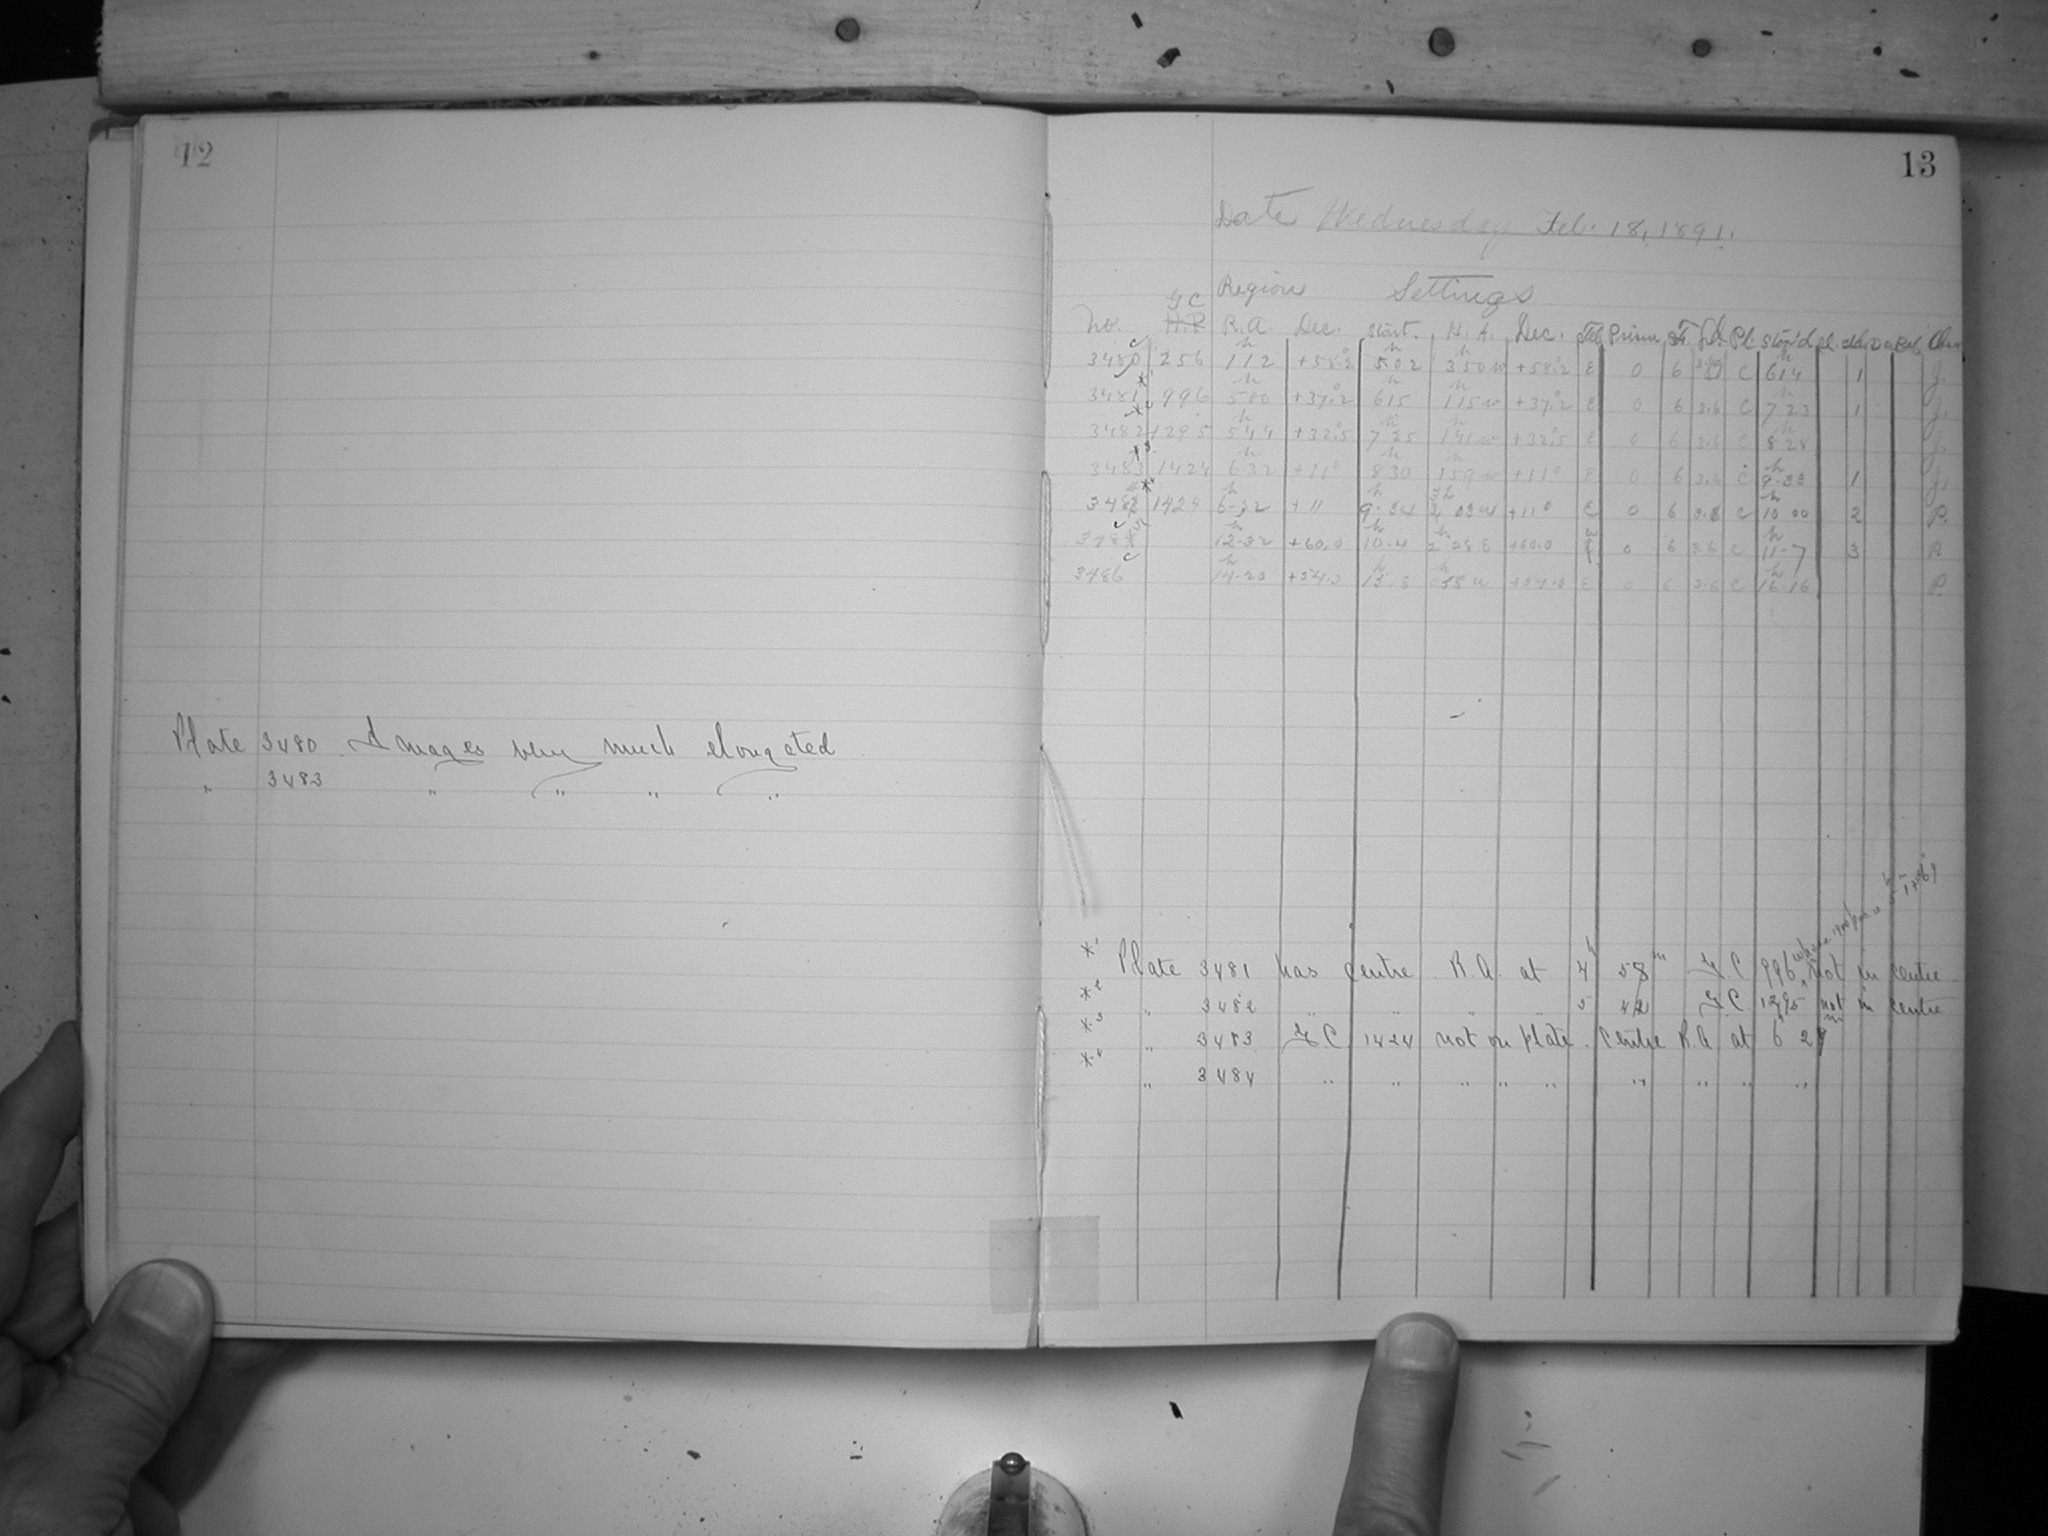 12
Plate 3480 Images very much elongated
" 3483 " " " "
13
Date Wednesday Feb. 18, 1891.
Regions Settings
G C
No. H.P. R.A. Dec. Start. H.A. Dec. Tel. Prism St. Pl. Stop'd Cl. Obs.
3480 256 1 12 +58.2 5 02 3 50 w +58.2 E 0 6 C 6 14 1 J.
3481 996 5 00 +37.2 6 15 1 15 w +37.2 E 0 6 3.6 C 7 23 1 J.
3482 1295 5 44 +32.5 7 25 1 41 w +32.5 E 0 6 3.6 C 8 28 J.
3483 1424 6 32 +11° 8 30 1 59 w +11° E 0 6 3.6 C 9-33 1 J.
1424 6-32 +11 9-34 03 w +11° E 0 6 3.6 C 10 00 2 P.
12-32 +60.0 10-4 2 28 E +60.0 0 6 3.6 C 11-7 3 P.
3486 14-20 +54.0 15 15 w E 0 6 3.6 C 16 16 P.
*1 Plate 3481 has centre R.A. at 4h 58m G C 996 not in centre
*2 " 3482 " " " " 5 42 G C 1295 not in centre
*3 " 3483 G.C. 1424 not on plate. Centre R.A at 6h 28m
*4 " 3484 " " " " " " " " "